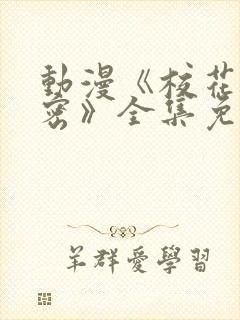 動漫《校花
密》全集免
羊群愛學習